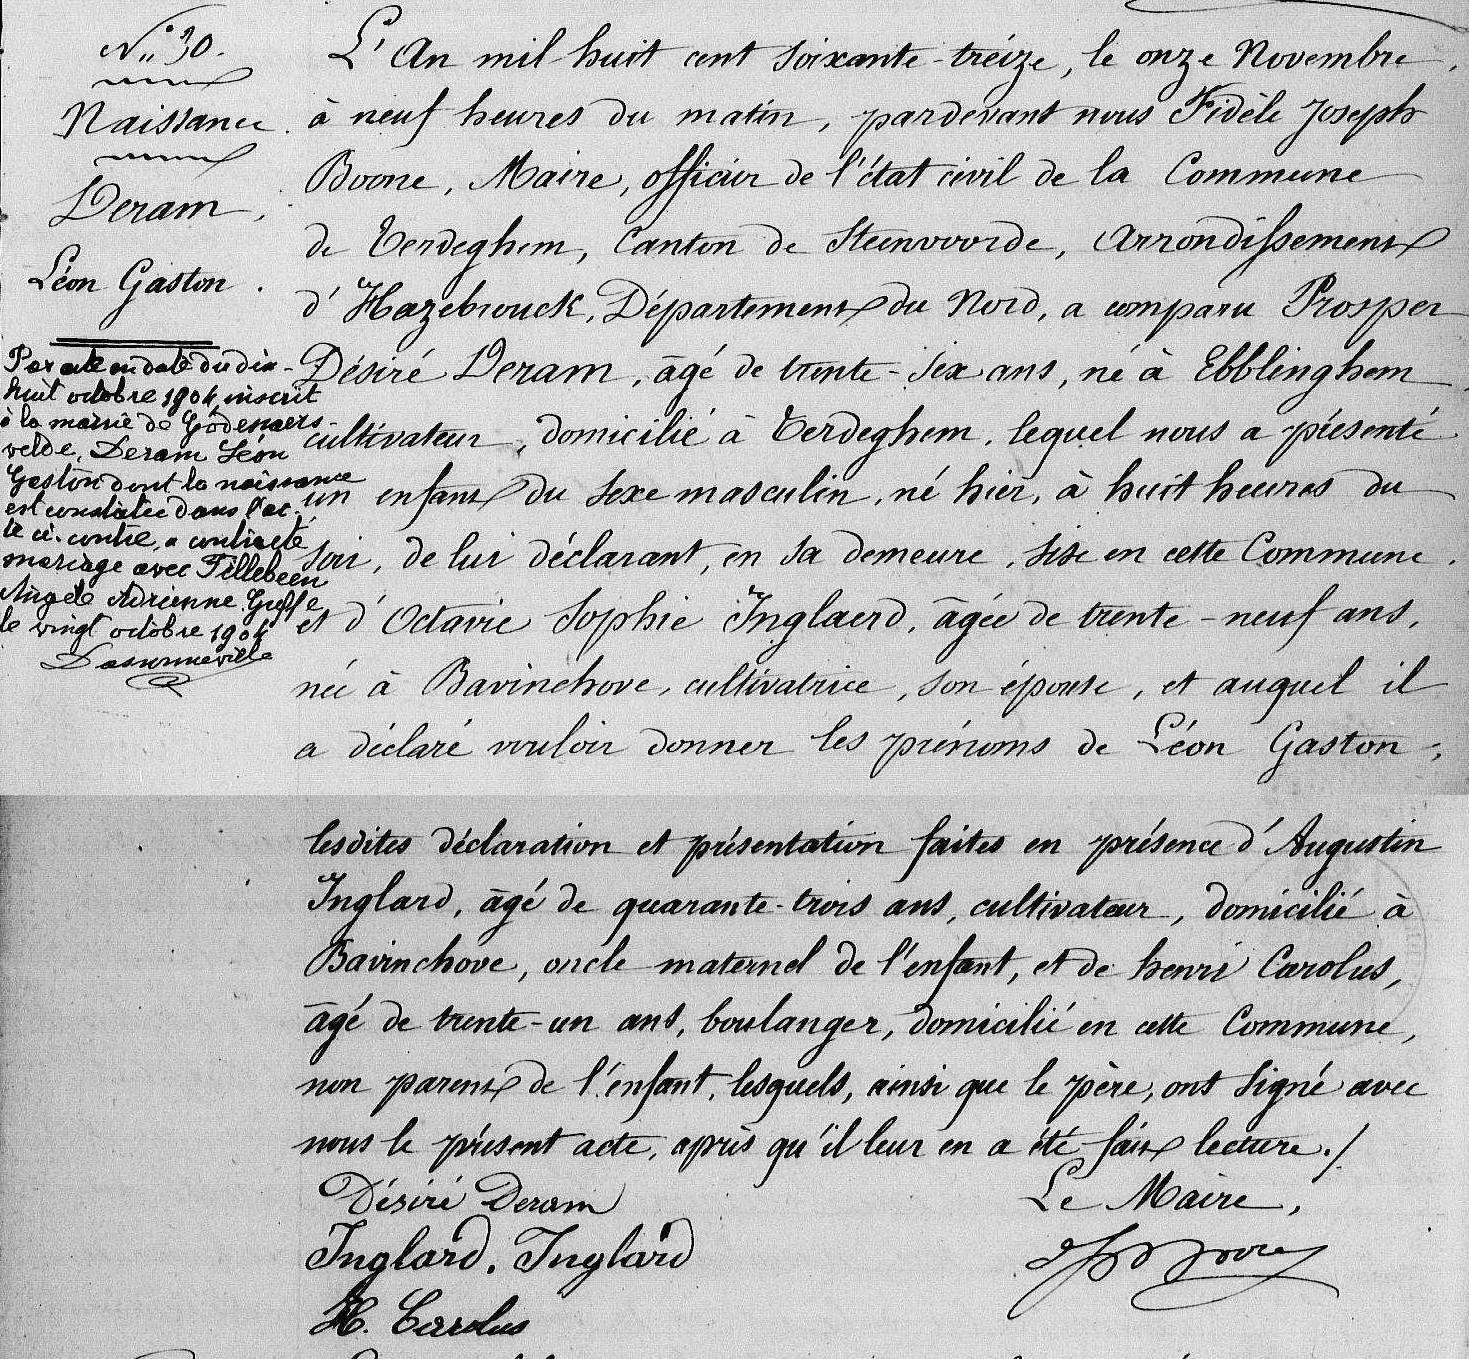 N° 30.
Naissance
Deram,
Léon Gaston.
Par acte en date du dix-
huit octobre 1904 inscrit
à la mairie de Godewaers-
velde, Deram Léon
Gaston dont la naissance
est constatée dans l'ac-
te ci-contre, a contracté
mariage avec Fillebeen
Angèle Adrienne. Greffe
le vingt octobre 1904
L'An mil huit cent soixante-treize, le onze Novembre,
à neuf heures du matin, pardevant nous Fidèle Joseph
Boone, Maire, officier de l'état civil de la Commune
de Terdeghem, Canton de Steenvoorde, Arrondissement
d'Hazebrouck, Département du Nord, a comparu Prosper
Désiré Deram, âgé de trente-six ans, né à Ebblinghem,
cultivateur, domicilié à Terdeghem, lequel nous a présenté
un enfant du sexe masculin, né hier, à huit heures du
soir, de lui déclarant, en sa demeure, sise en cette Commune,
et d'Octavie Sophie Inglaerd, âgée de trente-neuf ans,
née à Bavinchove, cultivatrice, son épouse, et auquel il
a déclaré vouloir donner les prénoms de Léon Gaston;
lesdites déclaration et présentation faites en présence d'Augustin
Inglard, âgé de quarante-trois ans, cultivateur, domicilié à
Bavinchove, oncle maternel de l'enfant, et de henri Carolus,
âgé de trente-un ans, boulanger, domicilié en cette Commune,
non parent de l'enfant, lesquels, ainsi que le père, ont signé avec
nous le présent acte, après qu'il leur en a été fait lecture./
Désiré Deram
Le Maire,
Inglard. Inglard
H. Carolus